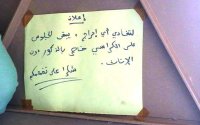 إعلان
لتفادي أي إحراج ، يبقى الجلوس
على الكراسي خاص بالذكور دون
الإناث.
شكرا على تفهمكم